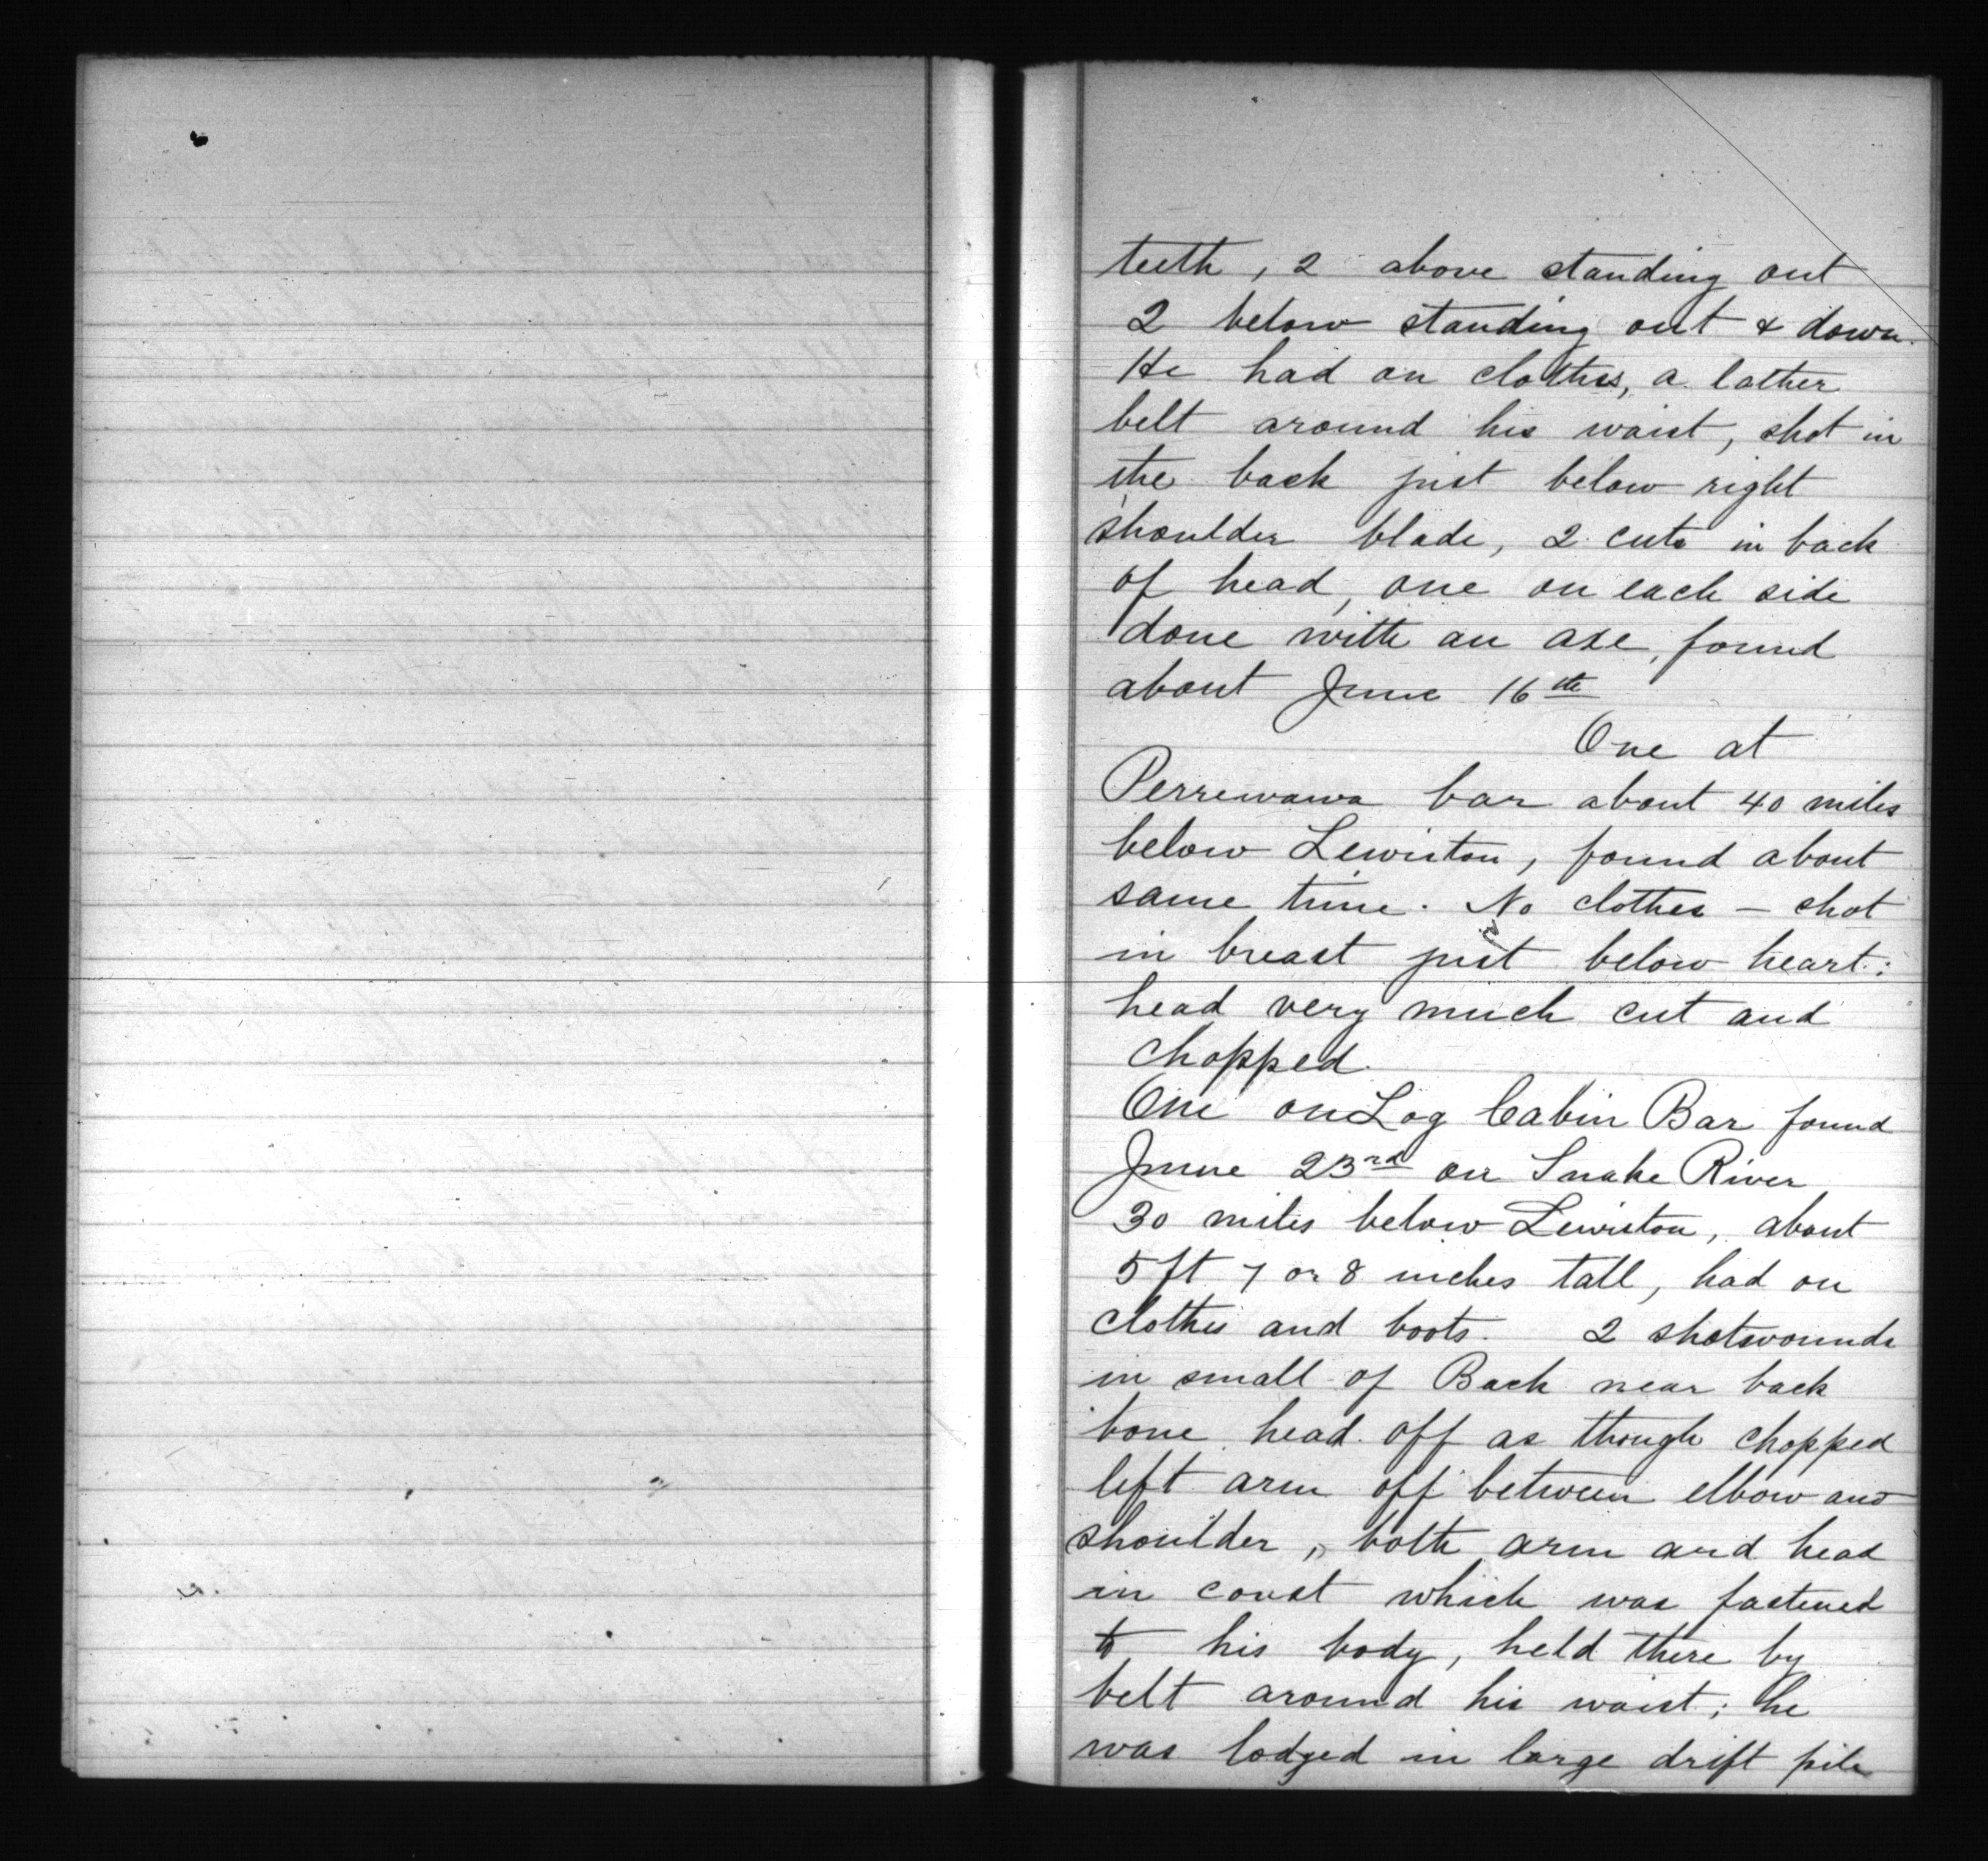 teeth, 2 above standing out
2 below standing out & down.
He had on clothes, a lather
belt around his waist, shot in
the back just below right
shoulder blade, 2 cuts in back
of head, one on each side
done with an axe, found
about June 16th
One at
Perrewawa bar about 40 miles
below Lewiston, found about
same time. No clothes - shot
in breast just below heart:
head very much cut and
chopped.
One on Log Cabin Bar found
June 23rd on Snake River
30 miles below Lewiston, about
5 ft 7 or 8 inches tall, had on
clothes and boots. 2 shotwounds
in small of Back near back
bone head off as though chopped
left arm off between elbow and
shoulder, both arm and head
in coust which was fastened
to his body, held there by
belt around his waist; he
was lodged in large drift pile